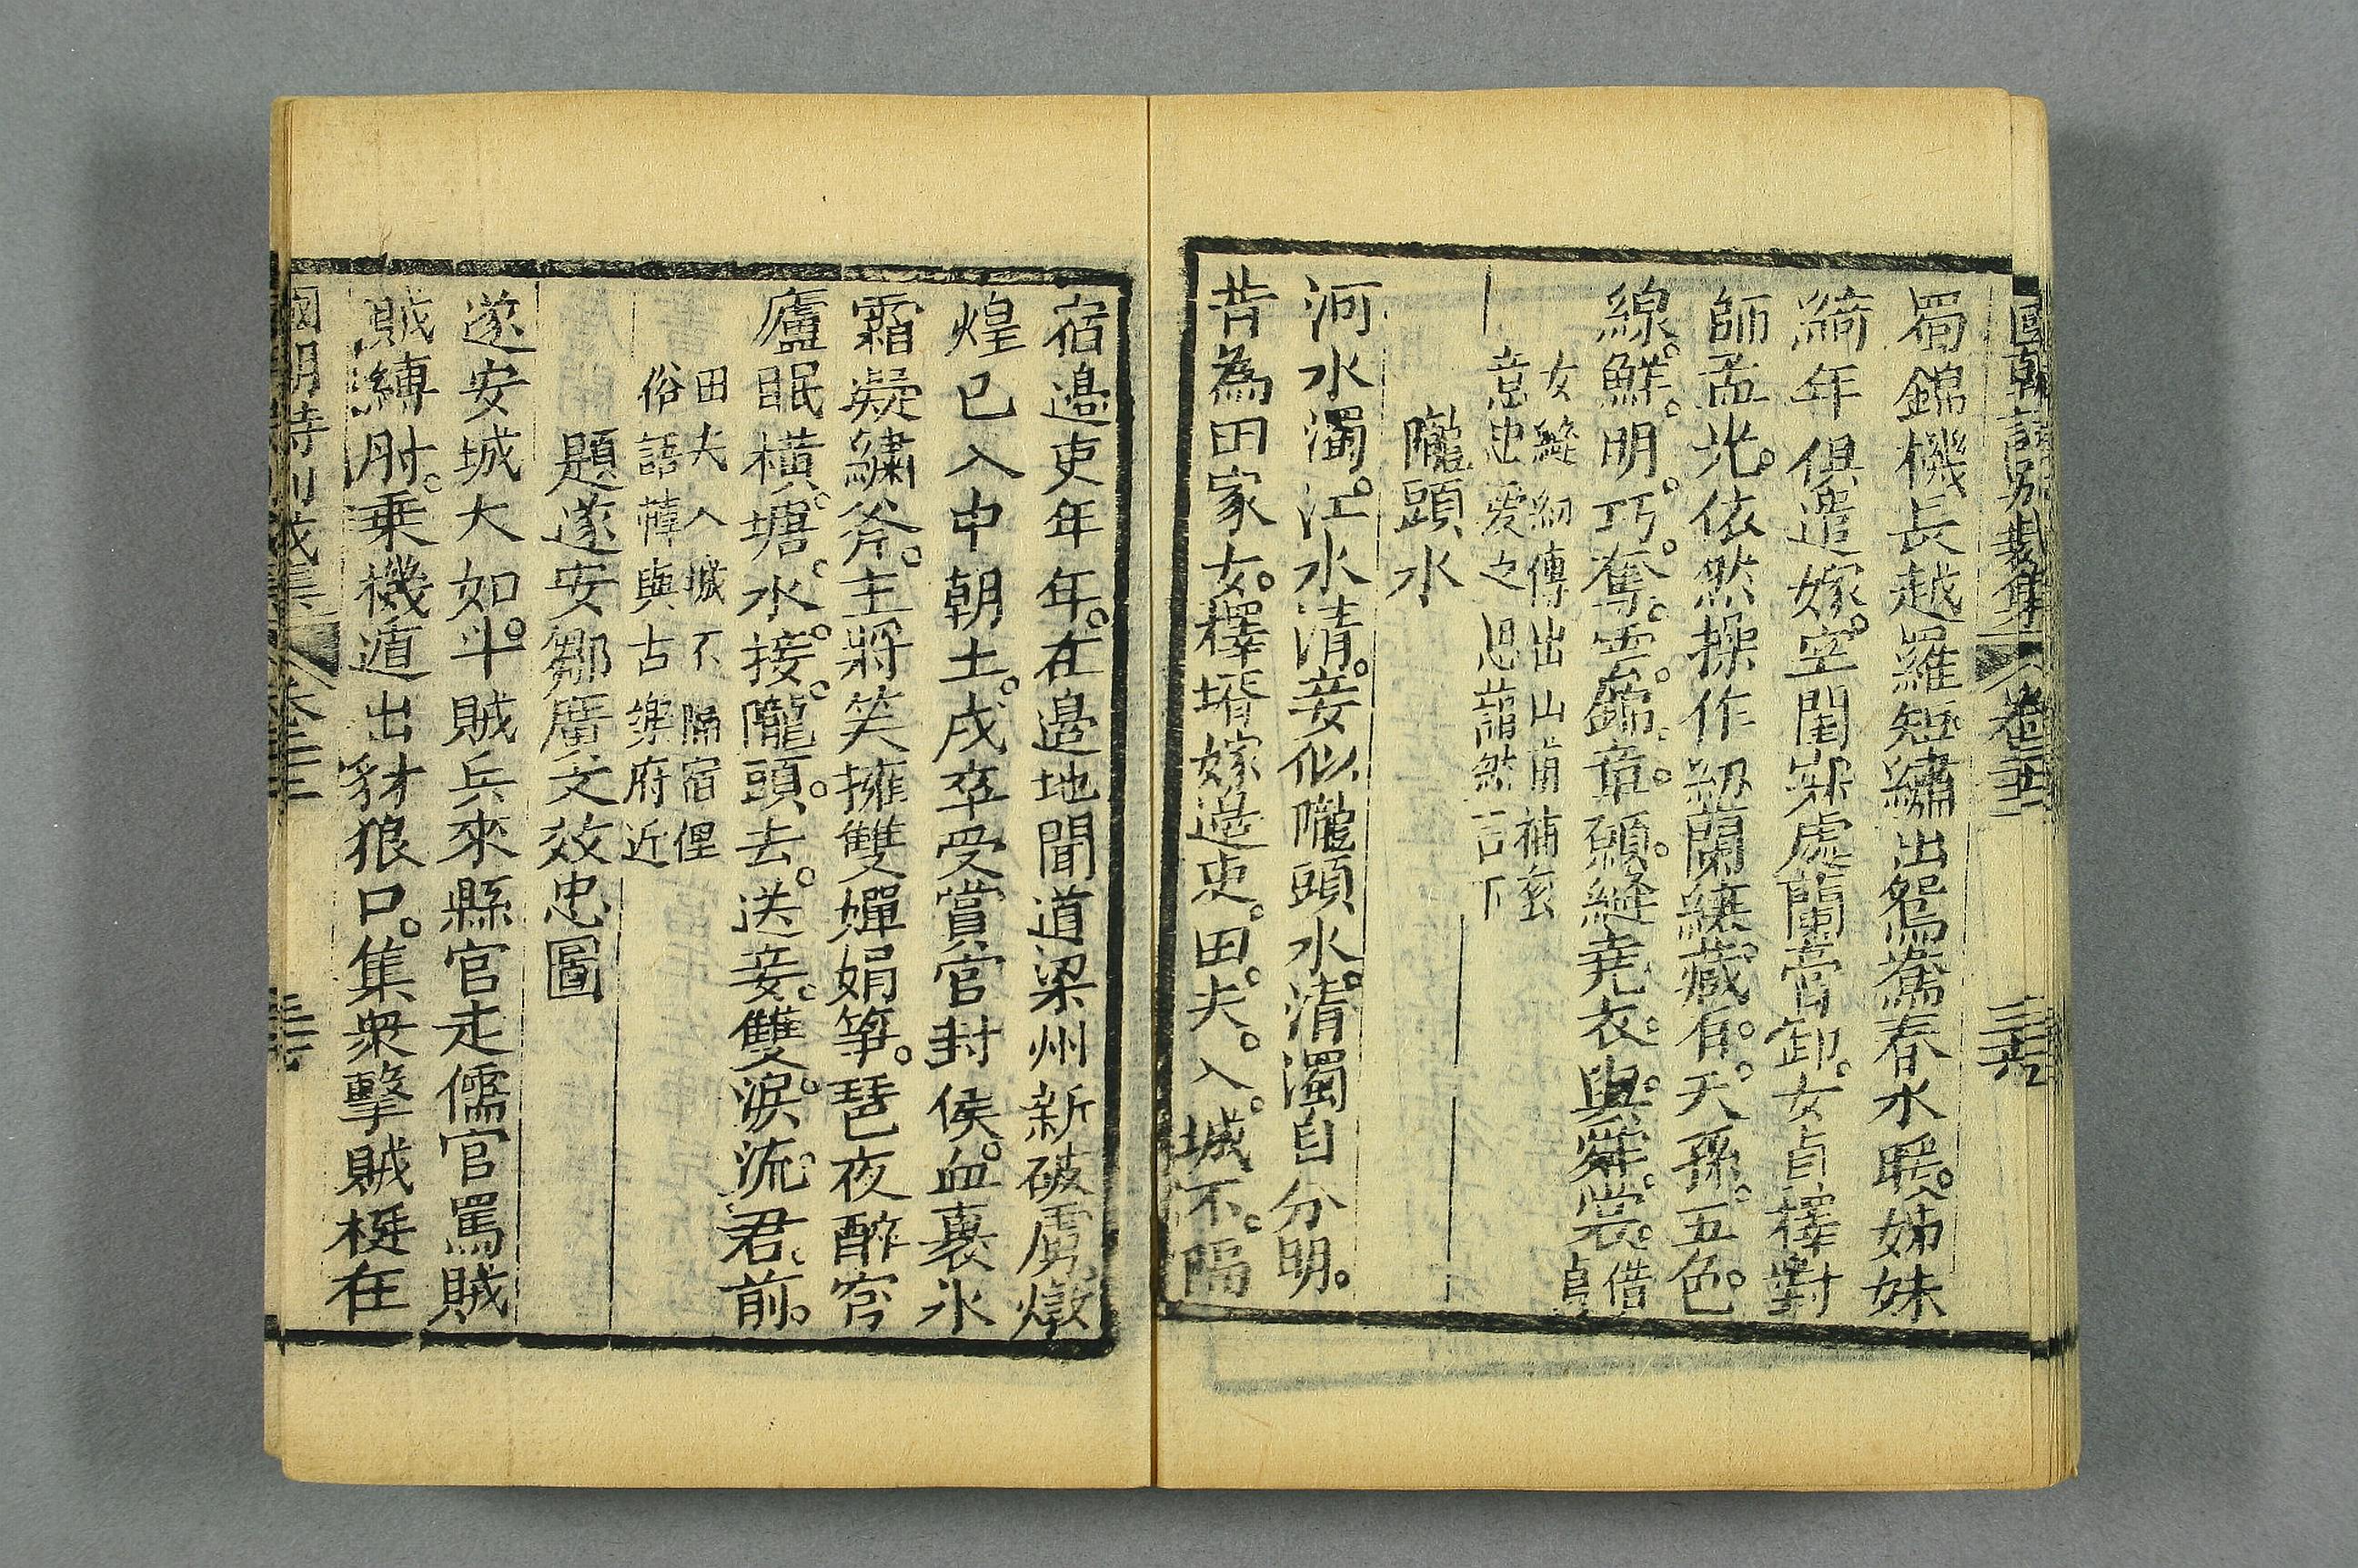 國朝詩別裁集 卷三十三 三十六
蜀錦機長越羅短繡出鴛鴦春水暖姊妹
綺年俱遣嫁空閨寂處蘭膏卸女貞擇對
師孟光依然操作紉蘭纕藏有天孫五色
線鮮明巧奪雲錦章願縫堯衣與舜裳借
女縫紉傳出山甫補袞
意忠愛之思藹然言下
隴頭水
河水濁江水清妾似隴頭水清濁自分明
昔為田家女擇壻嫁邊吏田夫入城不隔
宿邊吏年年在邊地聞道梁州新破虜燉
煌已入中朝土戍卒受賞官封侯血裹氷
霜凝繡斧主將笑擁雙嬋娟箏琶夜醉穹
廬眠橫塘水接隴頭去送妾雙淚流君前
田夫入城不隔宿俚
俗語偉與古樂府近
題遂安鄒廣文效忠圖
遂安城大如斗賊兵來縣官走儒官罵賊
賊縛肘乗機遁出豺狼口集衆擊賊梃在